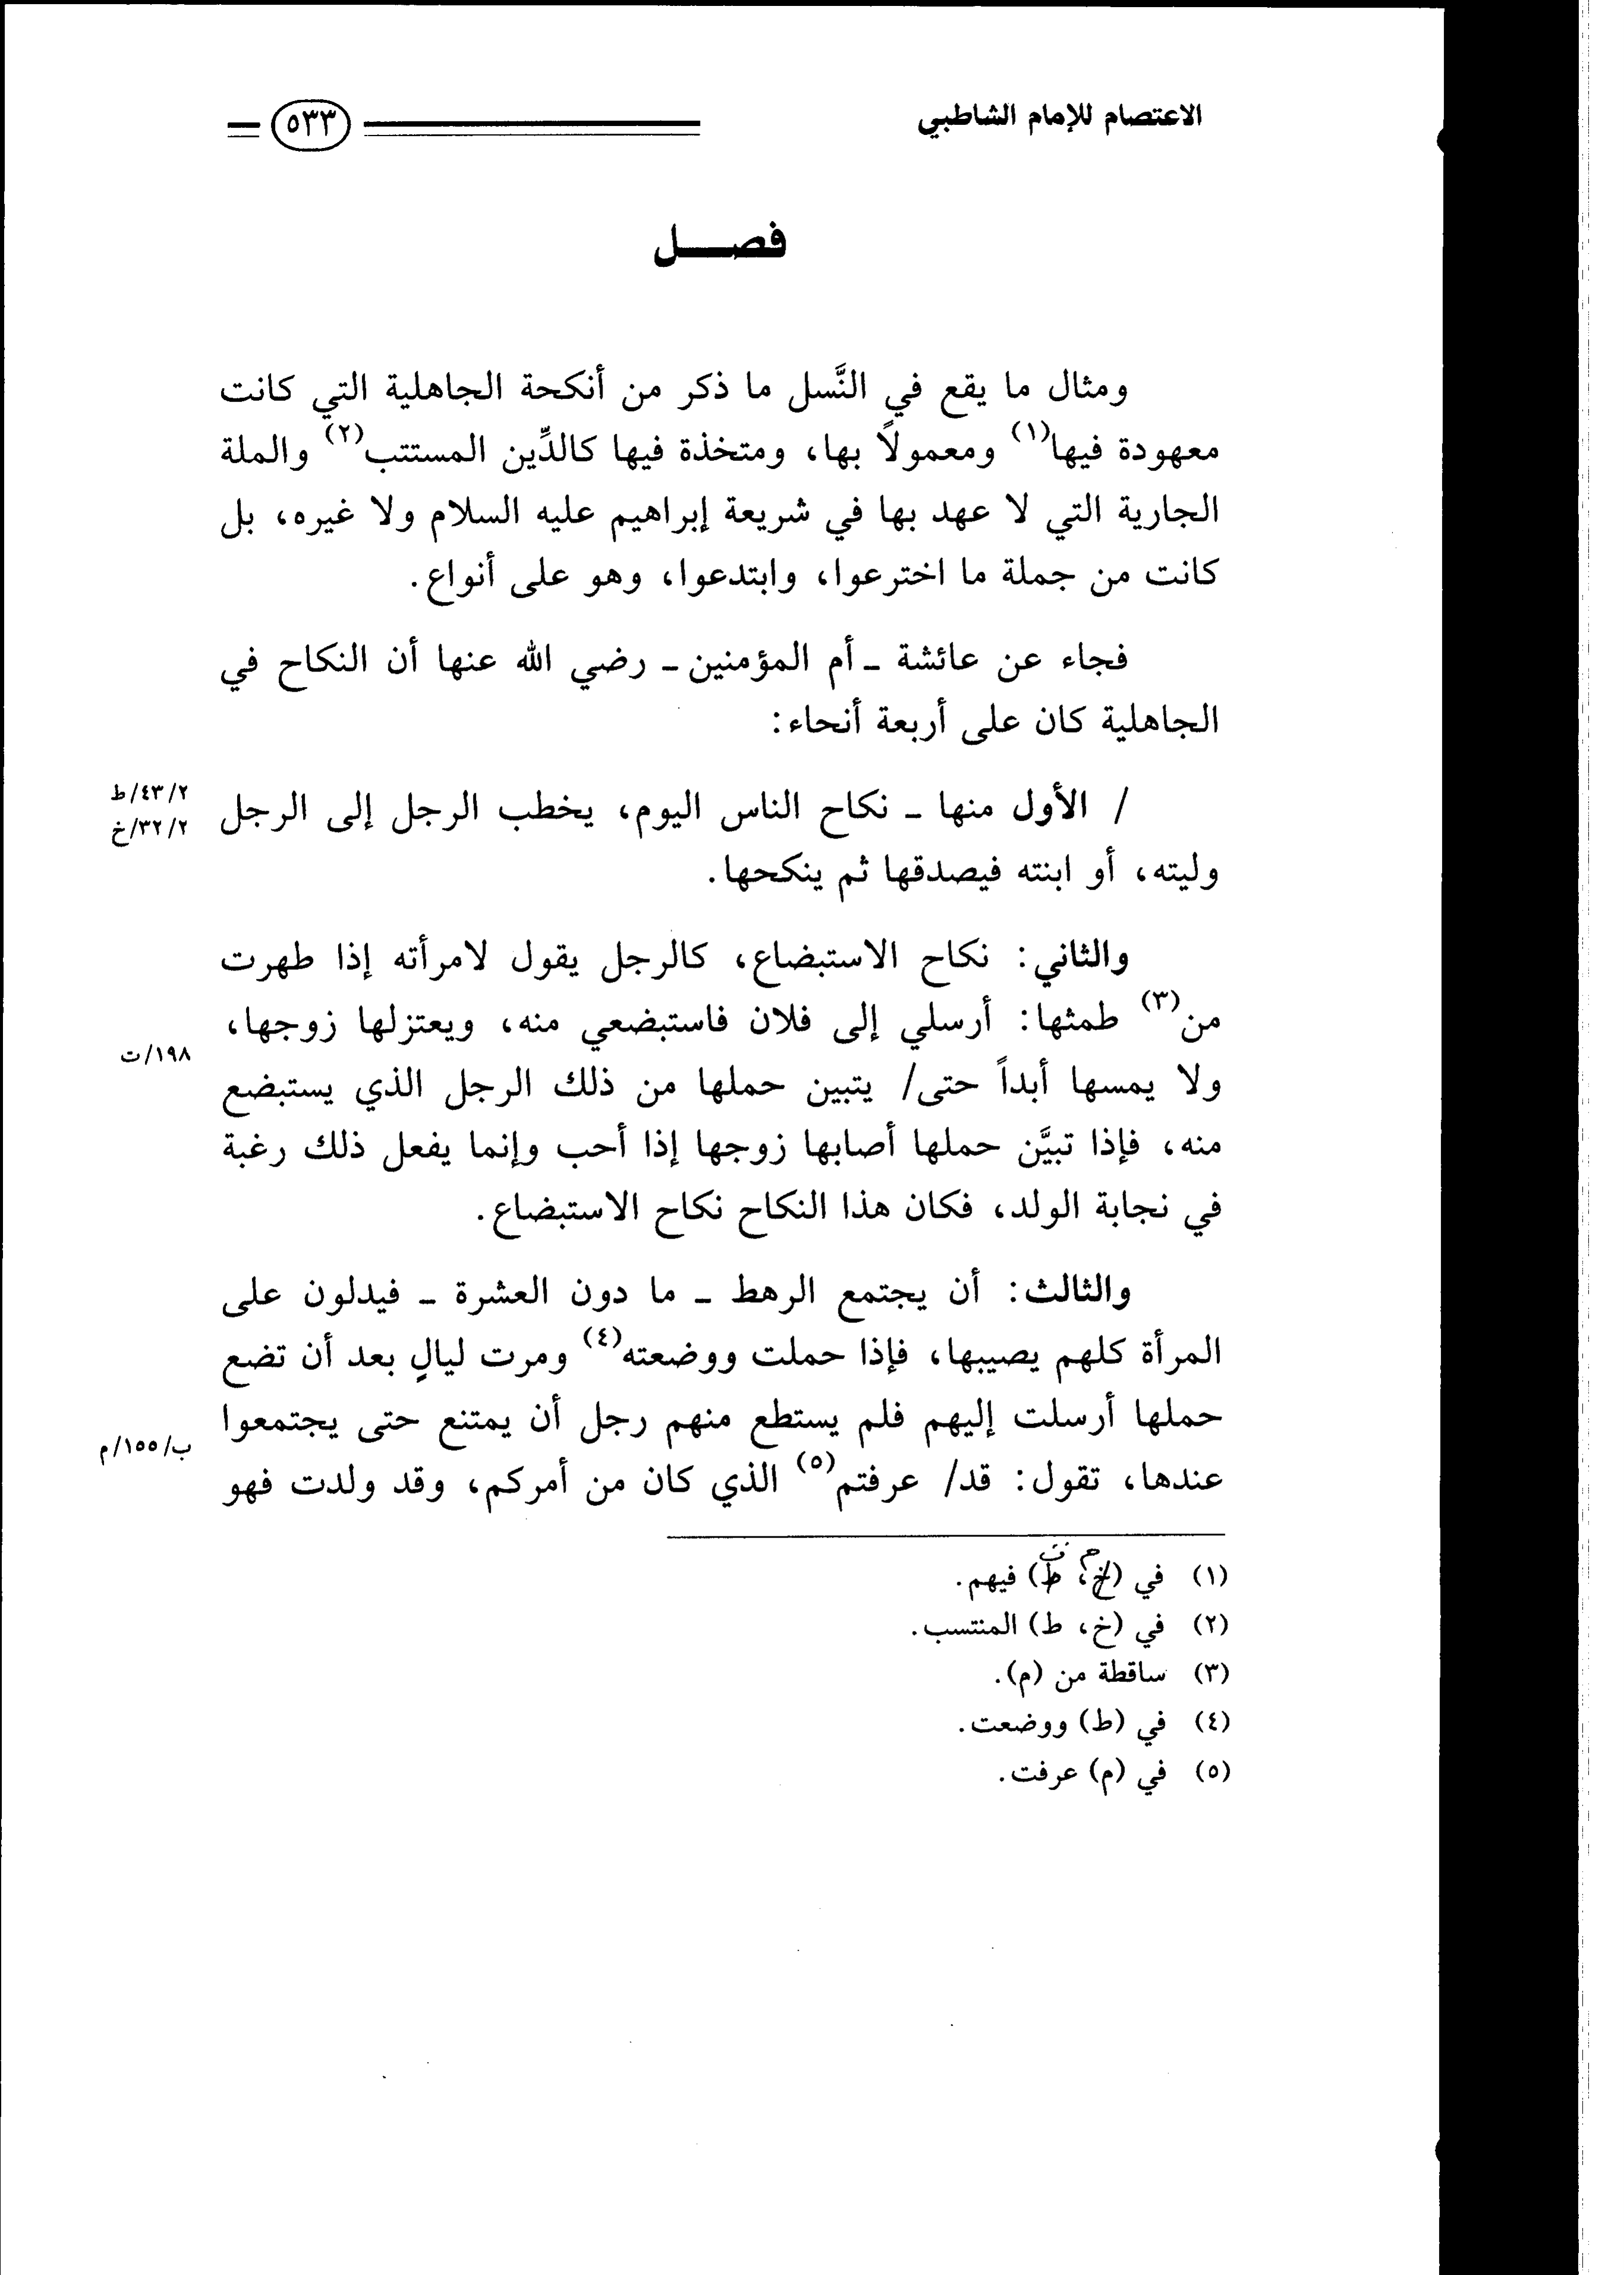 الاعتصام للإمام الشاطبي
٥٣٣
فصـــل
ومثال ما يقع في النَّسل ما ذكر من أنكحة الجاهلية التي كانت
معهودة فيها(١) ومعمولاً بها، ومتخذة فيها كالدِّين المستتب(٢) والملة
الجارية التي لا عهد بها في شريعة إبراهيم عليه السلام ولا غيره، بل
كانت من جملة ما اخترعوا، وابتدعوا، وهو على أنواع.
فجاء عن عائشة ـ أم المؤمنين ـ رضي الله عنها أن النكاح في
الجاهلية كان على أربعة أنحاء:
/ الأول منها ـ نكاح الناس اليوم، يخطب الرجل إلى الرجل
٢/٤٣/ط
٢/٣٢/خ
وليته، أو ابنته فيصدقها ثم ينكحها.
والثاني: نكاح الاستبضاع، كالرجل يقول لامرأته إذا طهرت
من(٣) طمثها: أرسلي إلى فلان فاستبضعي منه، ويعتزلها زوجها،
١٩٨/ت
ولا يمسها أبداً حتى/ يتبين حملها من ذلك الرجل الذي يستبضع
منه، فإذا تبيَّن حملها أصابها زوجها إذا أحب وإنما يفعل ذلك رغبة
في نجابة الولد، فكان هذا النكاح نكاح الاستبضاع.
والثالث: أن يجتمع الرهط ـ ما دون العشرة ـ فيدلون على
المرأة كلهم يصيبها، فإذا حملت ووضعته(٤) ومرت ليالٍ بعد أن تضع
حملها أرسلت إليهم فلم يستطع منهم رجل أن يمتنع حتى يجتمعوا
ب/١٥٥/م
عندها، تقول: قد/ عرفتم(٥) الذي كان من أمركم، وقد ولدت فهو
م ت
(١) في (خ، ط) فيهم.
(٢) في (خ، ط) المنتسب.
(٣) ساقطة من (م).
(٤) في (ط) ووضعت.
(٥) في (م) عرفت.